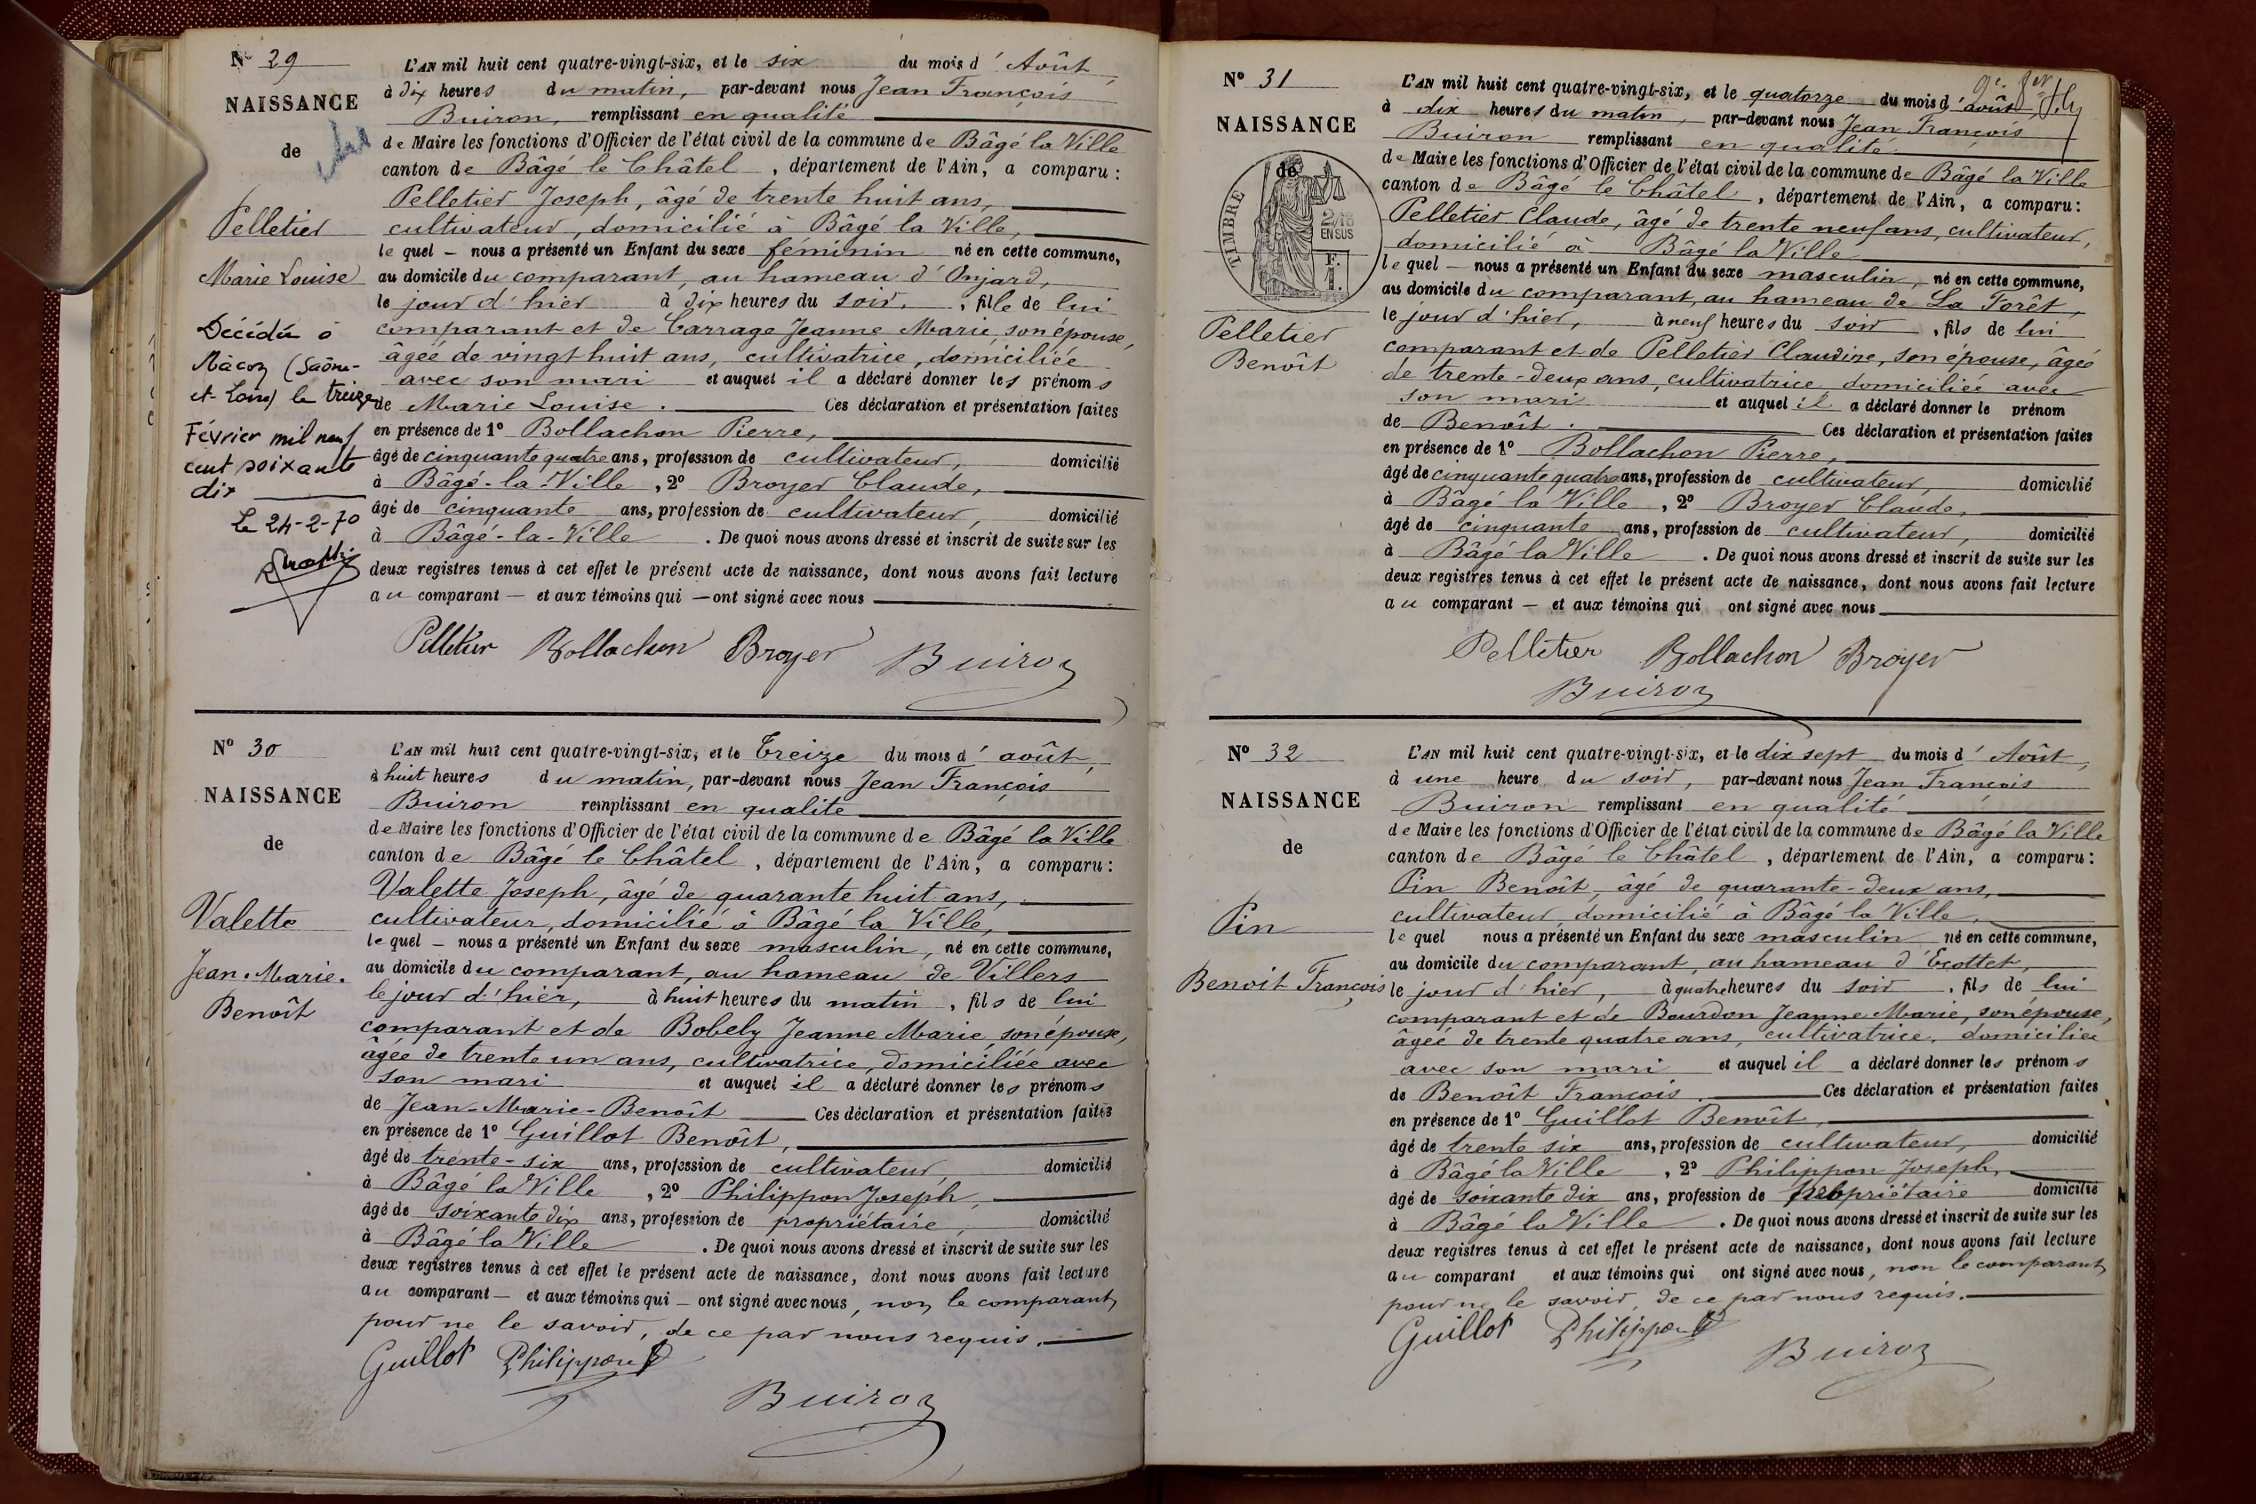 Nº 29
NAISSANCE
de
Pelletier
Marie Louise
Décédée à
Mâcon (Saône-
et-Loire) le treize
Février mil neuf
cent soixante
dix
Le 24-2-70
L'AN mil huit cent quatre-vingt-six, et le six du mois d'Août,
à dix heures du matin, par-devant nous Jean François
Buiron, remplissant en qualité
de Maire les fonctions d'Officier de l'état civil de la commune de Bâgé la Ville
canton de Bâgé le Châtel, département de l'Ain, a comparu :
Pelletier Joseph, âgé de trente huit ans,
cultivateur, domicilié à Bâgé la Ville,
le quel — nous a présenté un Enfant du sexe féminin né en cette commune,
au domicile du comparant, au hameau d'Onjard,
le jour d'hier à dix heures du soir, fille de lui
comparant et de Carrage Jeanne Marie, son épouse,
âgée de vingt huit ans, cultivatrice, domiciliée
avec son mari et auquel il a déclaré donner les prénoms
de Marie Louise. Ces déclaration et présentation faites
en présence de 1º Bollachon Pierre,
âgé de cinquante quatre ans, profession de cultivateur, domicilié
à Bâgé-la-Ville, 2º Broyer Claude,
âgé de cinquante ans, profession de cultivateur, domicilié
à Bâgé-la-Ville. De quoi nous avons dressé et inscrit de suite sur les
deux registres tenus à cet effet le présent acte de naissance, dont nous avons fait lecture
au comparant — et aux témoins qui — ont signé avec nous
Pelletier Bollachon Broyer Buiron
Nº 30
NAISSANCE
de
Valette
Jean-Marie-
Benoît
L'AN mil huit cent quatre-vingt-six, et le treize du mois d'août,
à huit heures du matin, par-devant nous Jean François
Buiron remplissant en qualité
de Maire les fonctions d'Officier de l'état civil de la commune de Bâgé la Ville
canton de Bâgé le Châtel, département de l'Ain, a comparu :
Valette Joseph, âgé de quarante huit ans,
cultivateur, domicilié à Bâgé la Ville,
le quel — nous a présenté un Enfant du sexe masculin, né en cette commune,
au domicile du comparant, au hameau de Villers
le jour d'hier, à huit heures du matin, fils de lui
comparant et de Bobely Jeanne Marie, son épouse,
âgée de trente un ans, cultivatrice, domiciliée avec
son mari et auquel il a déclaré donner les prénoms
de Jean-Marie-Benoît Ces déclaration et présentation faites
en présence de 1º Guillot Benoît,
âgé de trente-six ans, profession de cultivateur, domicilié
à Bâgé la Ville, 2º Philippon Joseph,
âgé de soixante dix ans, profession de propriétaire, domicilié
à Bâgé la Ville. De quoi nous avons dressé et inscrit de suite sur les
deux registres tenus à cet effet le présent acte de naissance, dont nous avons fait lecture
au comparant — et aux témoins qui — ont signé avec nous, non le comparant,
pour ne le savoir, de ce par nous requis.
Guillot Philippon
Buiron
Nº 31
NAISSANCE
de
TIMBRE
2/10
EN SUS
F.
1
Pelletier
Benoît
L'AN mil huit cent quatre-vingt-six, et le quatorze du mois d'août
à dix heures du matin, par-devant nous Jean François
Buiron remplissant en qualité
de Maire les fonctions d'Officier de l'état civil de la commune de Bâgé la Ville
canton de Bâgé le Châtel, département de l'Ain, a comparu :
Pelletier Claude, âgé de trente neuf ans, cultivateur,
domicilié à Bâgé la Ville
le quel — nous a présenté un Enfant du sexe masculin, né en cette commune,
au domicile du comparant, au hameau de La Forêt,
le jour d'hier, à neuf heures du soir, fils de lui
comparant et de Pelletier Claudine, son épouse, âgée
de trente-deux ans, cultivatrice domiciliée avec
son mari et auquel il a déclaré donner le prénom
de Benoît. Ces déclaration et présentation faites
en présence de 1º Bollachon Pierre,
âgé de cinquante quatre ans, profession de cultivateur, domicilié
à Bâgé la Ville, 2º Broyer Claude,
âgé de cinquante ans, profession de cultivateur, domicilié
à Bâgé la Ville. De quoi nous avons dressé et inscrit de suite sur les
deux registres tenus à cet effet le présent acte de naissance, dont nous avons fait lecture
au comparant — et aux témoins qui ont signé avec nous
Pelletier Bollachon Broyer
Buiron
Nº 32
NAISSANCE
de
Pin
Benoit François
L'AN mil huit cent quatre-vingt-six, et le dix sept du mois d'Août,
à une heure du soir, par-devant nous Jean François
Buiron remplissant en qualité
de Maire les fonctions d'Officier de l'état civil de la commune de Bâgé la Ville
canton de Bâgé le Châtel, département de l'Ain, a comparu :
Pin Benoît, âgé de quarante-deux ans,
cultivateur domicilié à Bâgé la Ville,
le quel nous a présenté un Enfant du sexe masculin né en cette commune,
au domicile du comparant, au hameau d'Ecottet,
le jour d'hier, à quatre heures du soir, fils de lui
comparant et de Bourdon Jeanne Marie, son épouse,
âgée de trente quatre ans, cultivatrice, domiciliée
avec son mari et auquel il a déclaré donner les prénoms
de Benoît François. Ces déclaration et présentation faites
en présence de 1º Guillot Benoît,
âgé de trente six ans, profession de cultivateur, domicilié
à Bâgé la Ville, 2º Philippon Joseph,
âgé de soixante dix ans, profession de propriétaire domicilié
à Bâgé la Ville. De quoi nous avons dressé et inscrit de suite sur les
deux registres tenus à cet effet le présent acte de naissance, dont nous avons fait lecture
au comparant et aux témoins qui ont signé avec nous, non le comparant,
pour ne le savoir, de ce par nous requis.
Guillot Philippon
Buiron